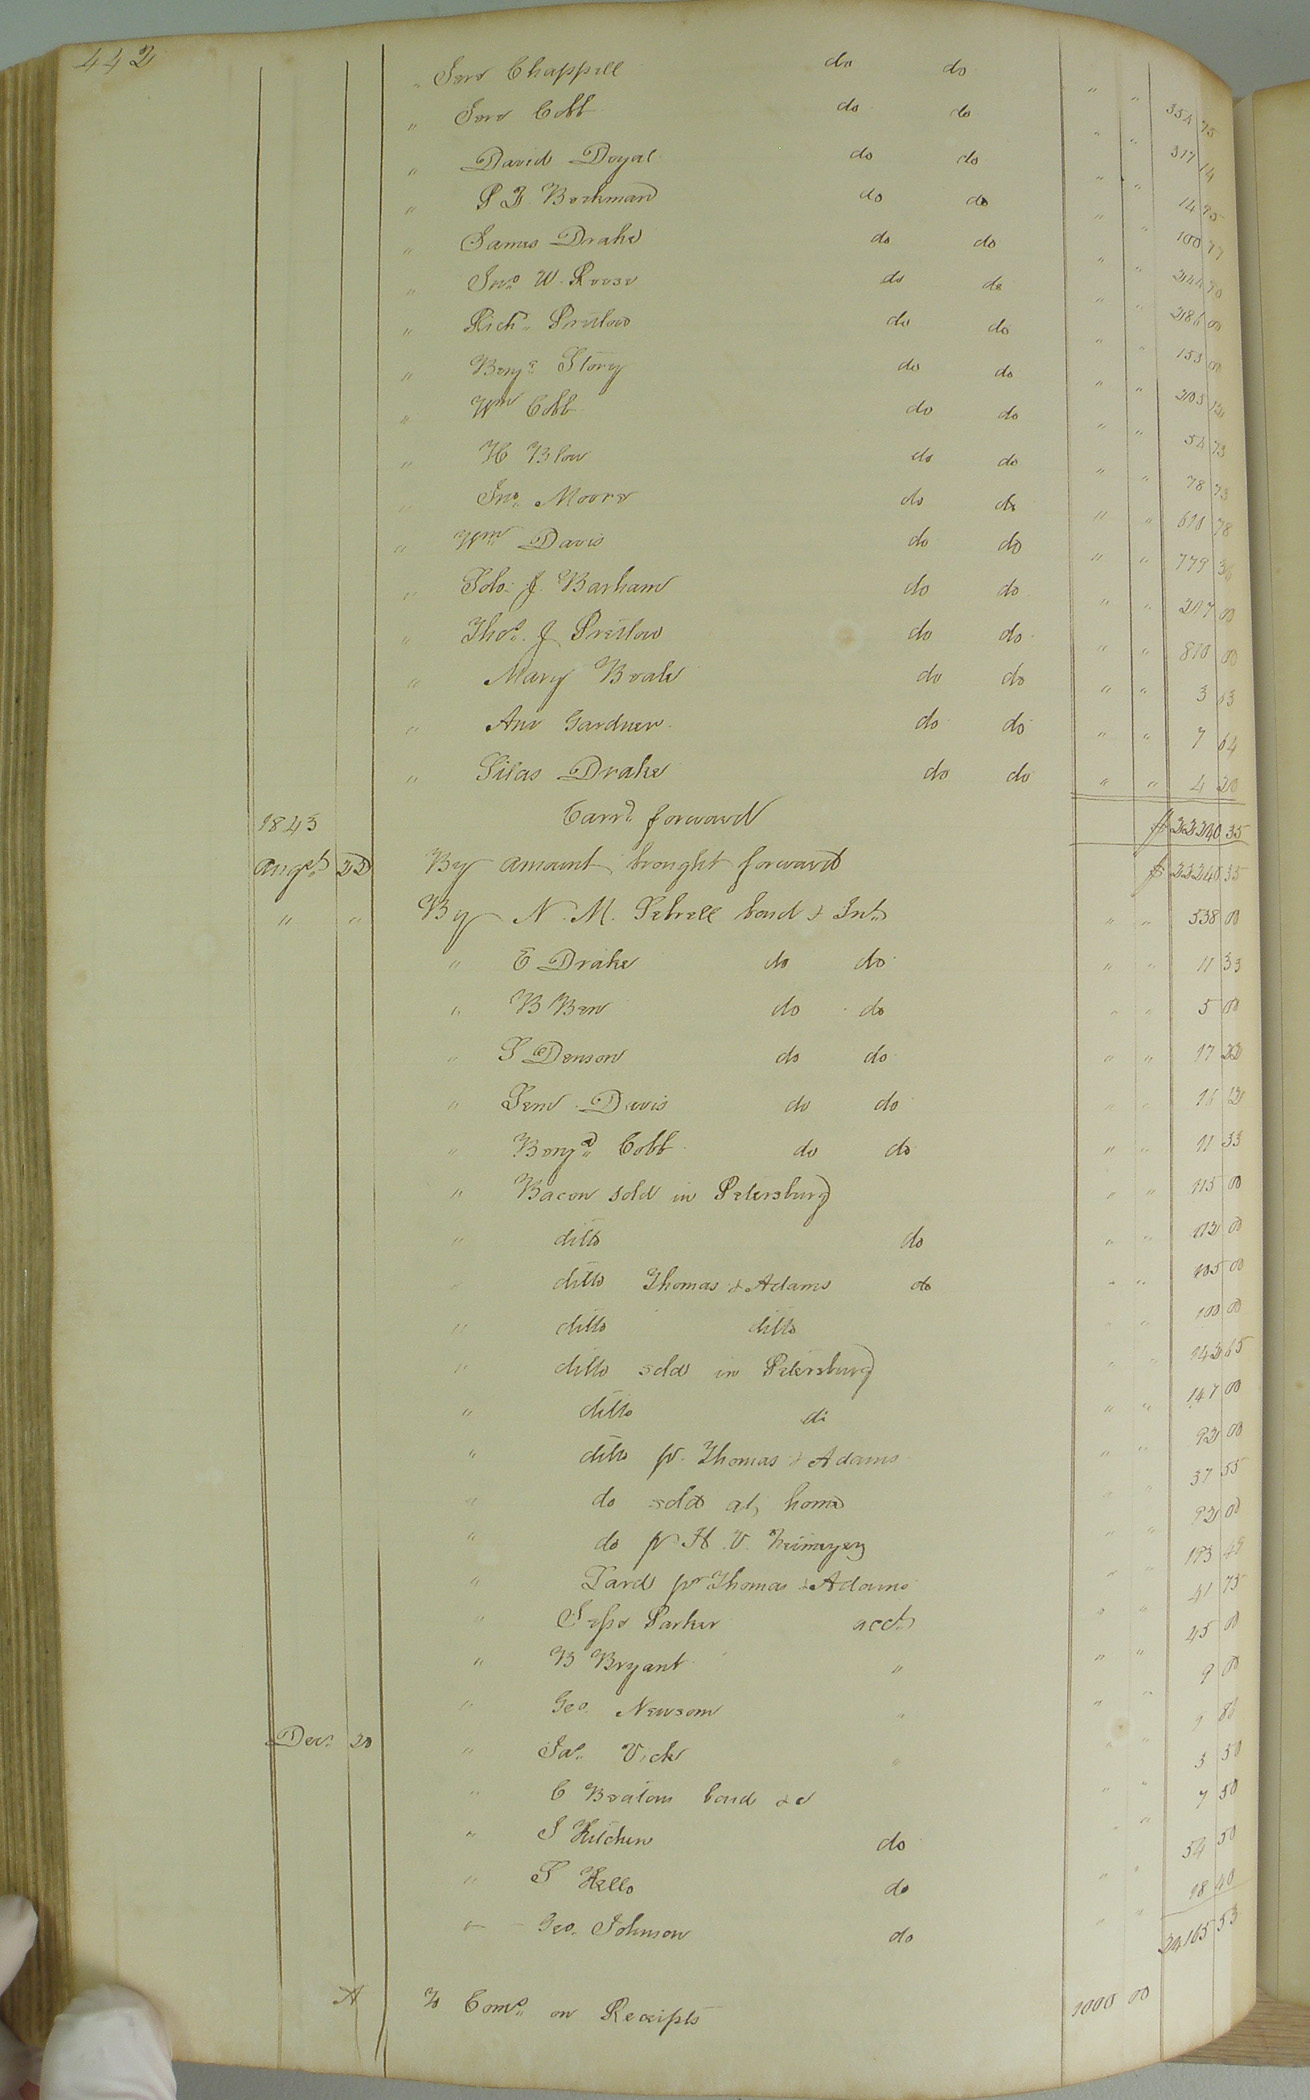 442
" Jno Chappell do do " " 354 75
" Jno Cobb do do " " 317 14
" David Doyal do do " " 14 95
" do do " " 100 77
" James Drake do do " " 244 90
" Jno. W. do do " " 286 00
" Rich. Pretlow do do " " 153 00
" Benj. Story do do " " 203 12
" Wm Cobb do do " " 54 73
" H Blow do do " " 78 73
" Jno. Moore do do " " 610 78
" Wm Davis do do " " 779 36
" Solo. J. Barham do do " " 207 00
" Thos. J Pretlow do do " " 810 00
" Mary Beale do do " " 3 63
" Ann Gardner do do " " 7 64
" Silas Drake do do " " 4 20
Carrd. forward $ 22240 35
1843
Augst. 22 By amount brought forward $ 22240 35
" " By N. M. Sebrell bond & Int. " " 538 00
" E Drake do do " " 11 33
" B do do " " 5 00
" S Denson do do " " 17 22
" Davis do do " " 16 12
" Benja. Cobb do do " " 11 33
" Bacon sold in Petersburg " " 115 00
" ditto do " " 112 00
" ditto Thomas & Adams do " " 105 00
" ditto ditto " " 100 00
" ditto sold in Petersburg " " 142 65
" ditto do " " 147 00
" ditto pr. Thomas & Adams " " 92 00
" do sold at home " " 37 55
" do pr H. V. " " 92 00
" Lard pr Thomas & Adams " " 193 49
" Jesse Parker acct. " " 41 75
" B Bryant " " " 45 00
" Geo. Newsom " " " 9 00
Decr. 20 " Jas. Vick " " " 9 80
" C Beaton bond &c " " 3 50
" J Kitchen do " " 7 50
" S Kello do " " 54 50
" Geo. Johnson do " " 18 40
24165 53
A To Coms. on Receipts 1000 00